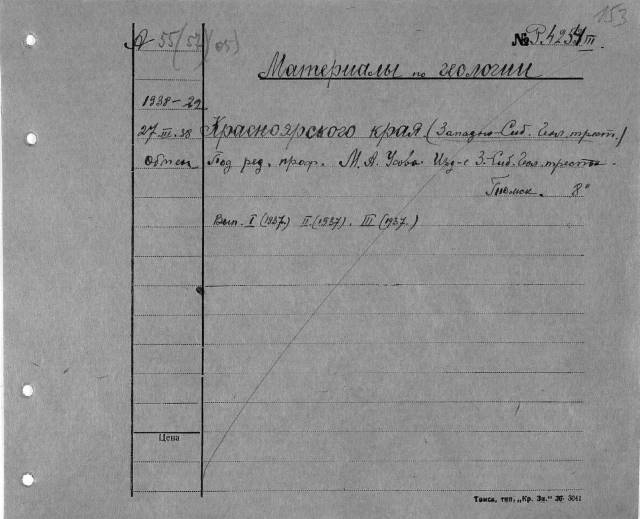 153
A 55(57)(05)
№ P.4254 III.
Материалы по геологии
1938-29
27.III.38 Красноярского края (Западно-Сиб. Геол. трест.)
Обмен Под ред. проф. М. А. Усова. Изд-е З.-Сиб. Геол. треста.
Томск. 8°
Вып. I (1937) II (1937). III (1937.)
Цена
Томск, тип. „Кр. Зн." 36- 3641